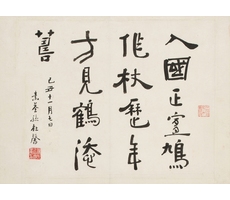 入國正宜鳩
作杖歷年
方見鶴淹
舊
己丑十一月七日